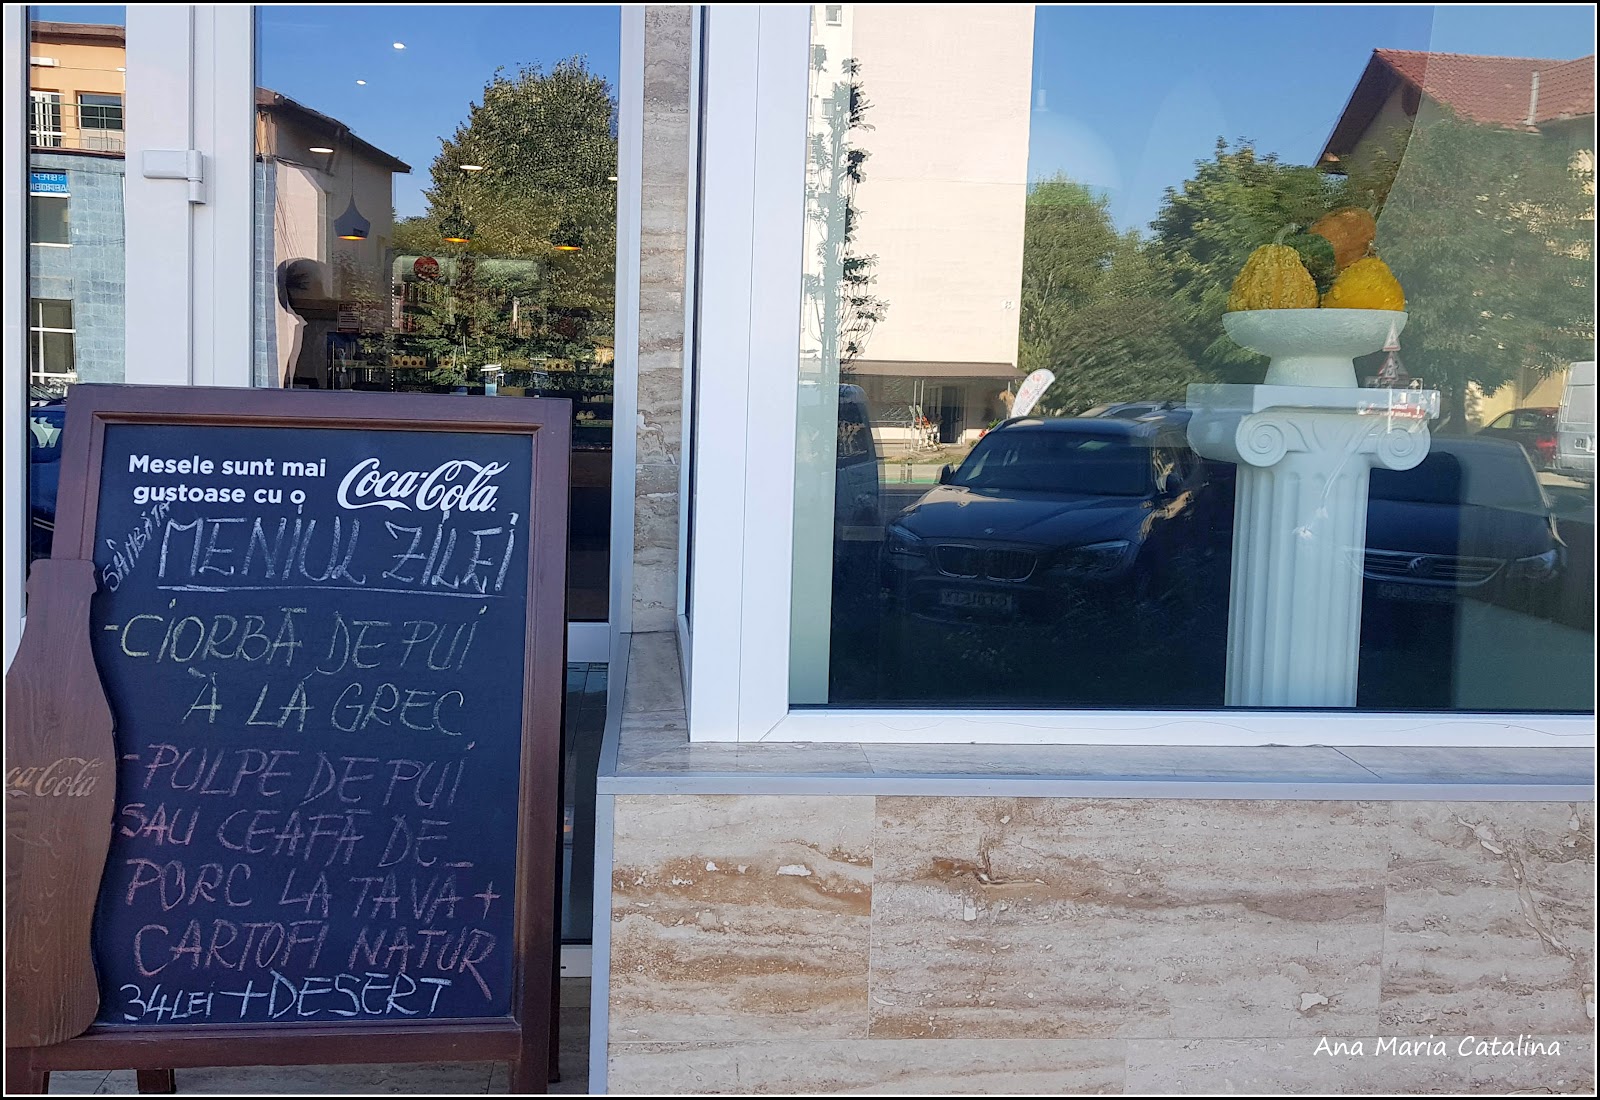 Mesele sunt mai
gustoase cu o Coca-Cola
SÂMBĂTĂ
MENIUL ZILEI
-CIORBĂ DE PUI
À LA GREC
-PULPE DE PUI
SAU CEAFĂ DE
PORC LA TAVĂ +
CARTOFI NATUR
34 LEI + DESERT
Coca-Cola
Ana Maria Catalina